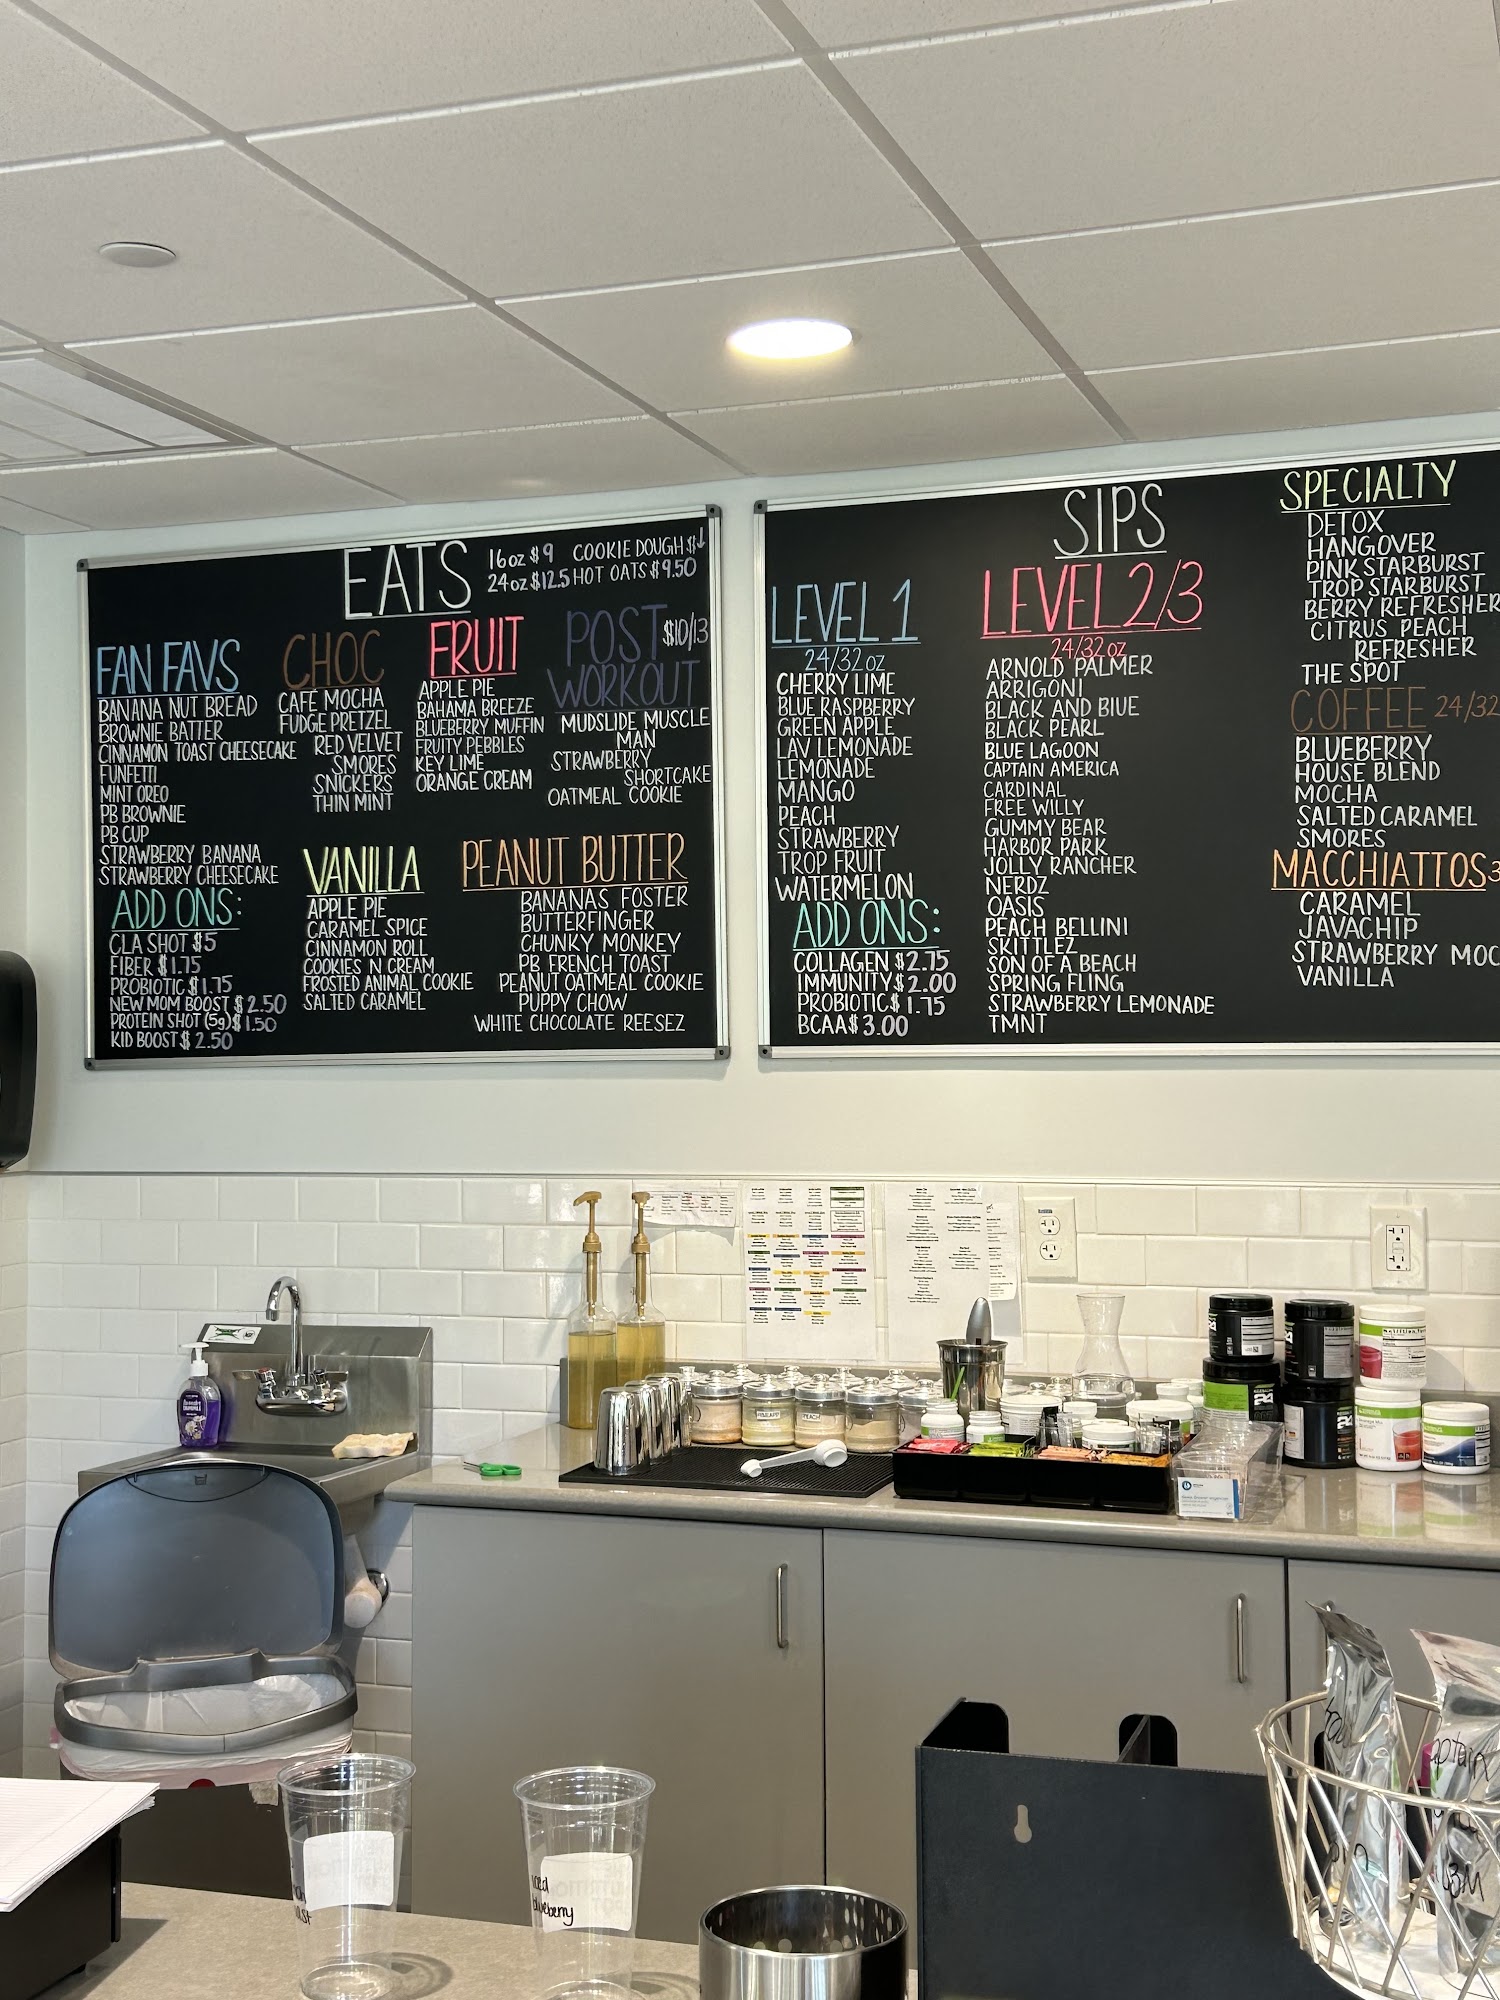 EATS
16oz $9
24oz $12.5
COOKIE DOUGH $↓
HOT OATS $9.50
FAN FAVS
BANANA NUT BREAD
BROWNIE BATTER
CINNAMON TOAST CHEESECAKE
FUNFETTI
MINT OREO
PB BROWNIE
PB CUP
STRAWBERRY BANANA
STRAWBERRY CHEESECAKE
ADD ONS:
CLA SHOT $5
FIBER $1.75
PROBIOTIC $1.75
NEW MOM BOOST $2.50
PROTEIN SHOT (5g) $1.50
KID BOOST $2.50
CHOC
CAFÉ MOCHA
FUDGE PRETZEL
RED VELVET
SMORES
SNICKERS
THIN MINT
FRUIT
APPLE PIE
BAHAMA BREEZE
BLUEBERRY MUFFIN
FRUITY PEBBLES
KEY LIME
ORANGE CREAM
POST $10/13
WORKOUT
MUDSLIDE MUSCLE
MAN
STRAWBERRY
SHORTCAKE
OATMEAL COOKIE
VANILLA
APPLE PIE
CARAMEL SPICE
CINNAMON ROLL
COOKIES N CREAM
FROSTED ANIMAL COOKIE
SALTED CARAMEL
PEANUT BUTTER
BANANAS FOSTER
BUTTERFINGER
CHUNKY MONKEY
PB FRENCH TOAST
PEANUT OATMEAL COOKIE
PUPPY CHOW
WHITE CHOCOLATE REESEZ
SIPS
LEVEL 1
24/32 oz
CHERRY LIME
BLUE RASPBERRY
GREEN APPLE
LAV LEMONADE
LEMONADE
MANGO
PEACH
STRAWBERRY
TROP FRUIT
WATERMELON
ADD ONS:
COLLAGEN $2.75
IMMUNITY $2.00
PROBIOTIC $1.75
BCAA $3.00
LEVEL 2/3
24/32 oz
ARNOLD PALMER
ARRIGONI
BLACK AND BLUE
BLACK PEARL
BLUE LAGOON
CAPTAIN AMERICA
CARDINAL
FREE WILLY
GUMMY BEAR
HARBOR PARK
JOLLY RANCHER
NERDZ
OASIS
PEACH BELLINI
SKITTLEZ
SON OF A BEACH
SPRING FLING
STRAWBERRY LEMONADE
TMNT
SPECIALTY
DETOX
HANGOVER
PINK STARBURST
TROP STARBURST
BERRY REFRESHER
CITRUS PEACH
REFRESHER
THE SPOT
COFFEE 24/32
BLUEBERRY
HOUSE BLEND
MOCHA
SALTED CARAMEL
SMORES
MACCHIATTOS 3
CARAMEL
JAVACHIP
STRAWBERRY MOC
VANILLA
PINEAPP
PEACH
24
iced
blueberry